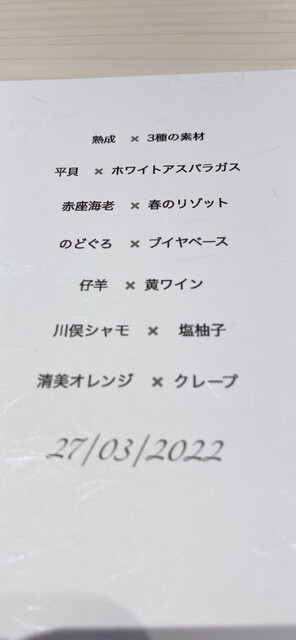 熟成 × 3種の素材
平貝 × ホワイトアスパラガス
赤座海老 × 春のリゾット
のどぐろ × ブイヤベース
仔羊 × 黄ワイン
川俣シャモ × 塩柚子
清美オレンジ × クレープ
27/03/2022